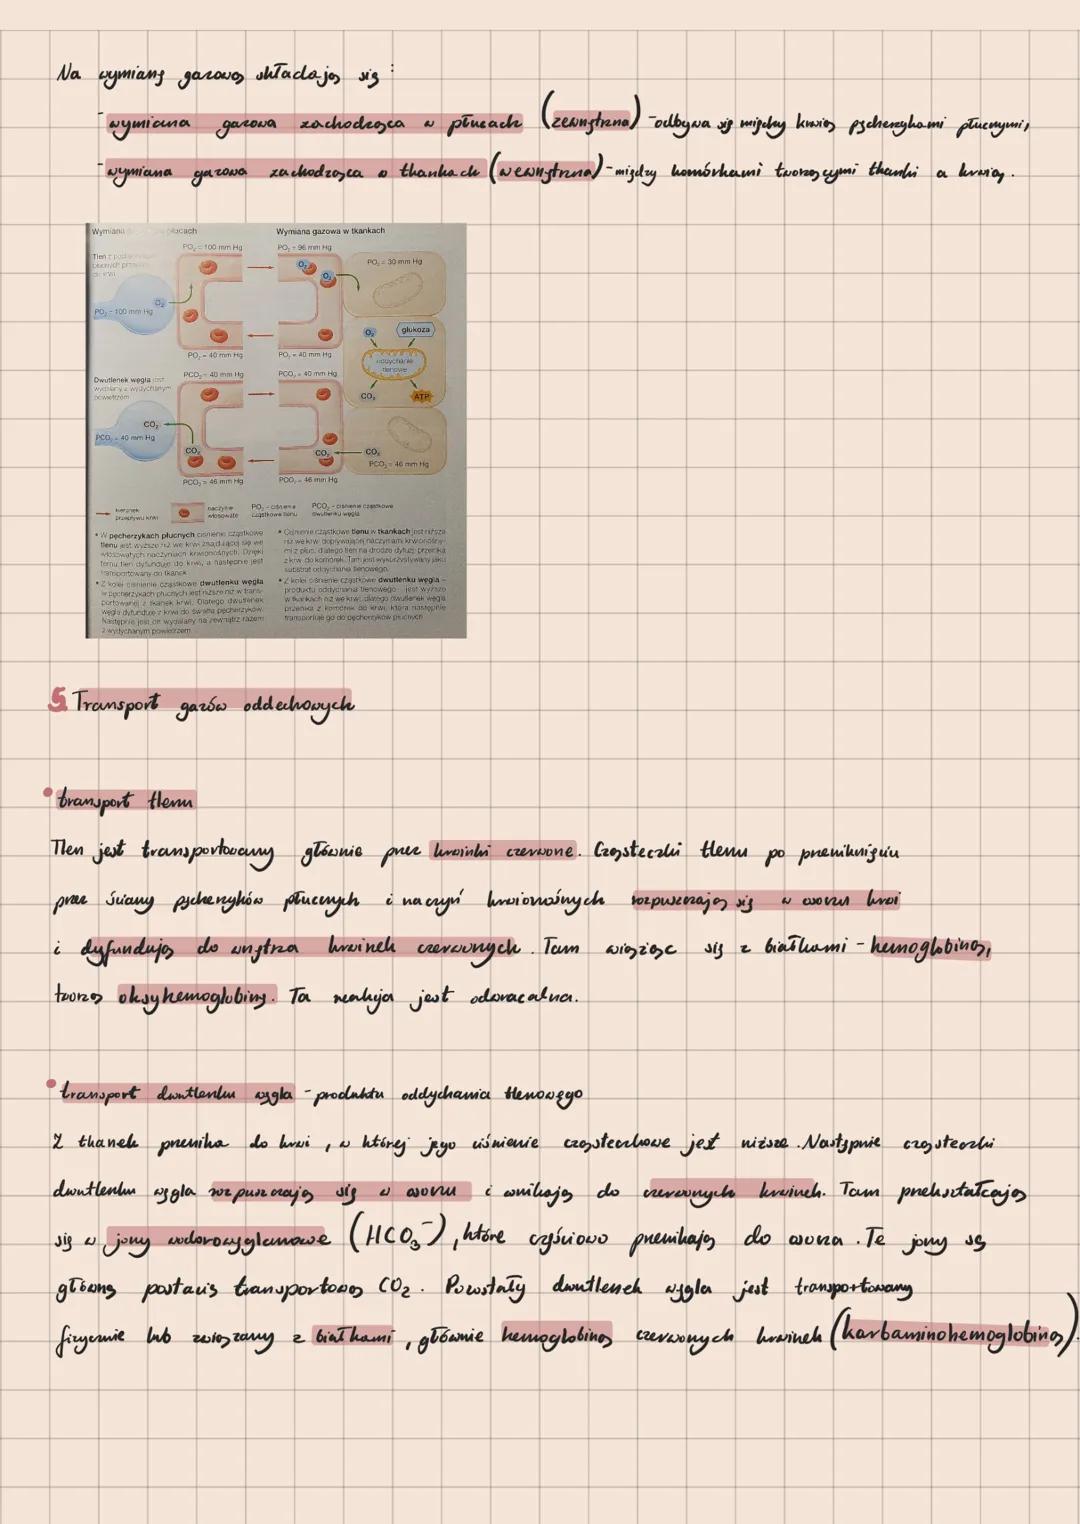 Na wymianę gazową składają się :
- wymiana gazowa zachodząca w płucach (zewnętrzna) - odbywa się między krwią pęcherzykami płucnymi,
- wymiana gazowa zachodząca w tkankach (wewnętrzna) - między komórkami tworzącymi tkanki a krwią.
Wymiana płucach
Wymiana gazowa w tkankach
PO₂ = 100 mm Hg
PO₂ = 96 mm Hg
PO₂ = 30 mm Hg
Tlen z
płucnych
do krwi
O₂
O₂
O₂
PO₂ = 100 mm Hg
O₂
glukoza
oddychanie
tlenowe
PO₂ = 40 mm Hg
PO₂ = 40 mm Hg
PCO₂ = 40 mm Hg
PCO₂ = 40 mm Hg
Dwutlenek węgla jest
wydalany z wydychanym
powietrzem
CO₂
ATP
CO₂
PCO₂ = 40 mm Hg
CO₂
CO₂
CO₂
PCO₂ = 46 mm Hg
PCO₂ = 46 mm Hg
PCO₂ = 46 mm Hg
kierunek
przepływu krwi
naczynie
włosowate
PO₂ – ciśnienie
cząstkowe tlenu
PCO₂ – ciśnienie cząstkowe
dwutlenku węgla
• W pęcherzykach płucnych ciśnienie cząstkowe
tlenu jest wyższe niż we krwi znajdującej się we
włosowatych naczyniach krwionośnych. Dzięki
temu tlen dyfunduje do krwi, a następnie jest
transportowany do tkanek.
• Z kolei ciśnienie cząstkowe dwutlenku węgla
w pęcherzykach płucnych jest niższe niż w trans-
portowanej z tkanek krwi. Dlatego dwutlenek
węgla dyfunduje z krwi do światła pęcherzyków.
Następnie jest on wydalany na zewnątrz razem
z wydychanym powietrzem.
• Ciśnienie cząstkowe tlenu w tkankach jest niższe
niż we krwi dopływającej naczyniami krwionośny-
mi z płuc, dlatego tlen na drodze dyfuzji przenika
z krwi do komórek. Tam jest wykorzystywany jako
substrat oddychania tlenowego.
• Z kolei ciśnienie cząstkowe dwutlenku węgla –
produktu oddychania tlenowego – jest wyższe
w tkankach niż we krwi, dlatego dwutlenek węgla
przenika z komórek do krwi, która następnie
transportuje go do pęcherzyków płucnych.
5. Transport gazów oddechowych
• transport tlenu
Tlen jest transportowany głównie przez krwinki czerwone. Cząsteczki tlenu po przeniknięciu
przez ściany pęcherzyków płucnych i naczyń krwionośnych rozpuszczają się w osoczu krwi
i dyfundują do wnętrza krwinek czerwonych. Tam wiążąc się z białkami - hemoglobiną,
tworzą oksyhemoglobinę. Ta reakcja jest odwracalna.
• transport dwutlenku węgla - produktu oddychania tlenowego
Z tkanek przenika do krwi, w której jego ciśnienie cząsteczkowe jest niższe. Następnie cząsteczki
dwutlenku węgla rozpuszczają się w osoczu i wnikają do czerwonych krwinek. Tam przekształcają
się w jony wodorowęglanowe (HCO₃⁻), które częściowo przenikają do osocza. Te jony są
główną postacią transportową CO₂. Pozostały dwutlenek węgla jest transportowany
fizycznie lub związany z białkami, głównie hemoglobiną czerwonych krwinek (karbaminohemoglobiną).